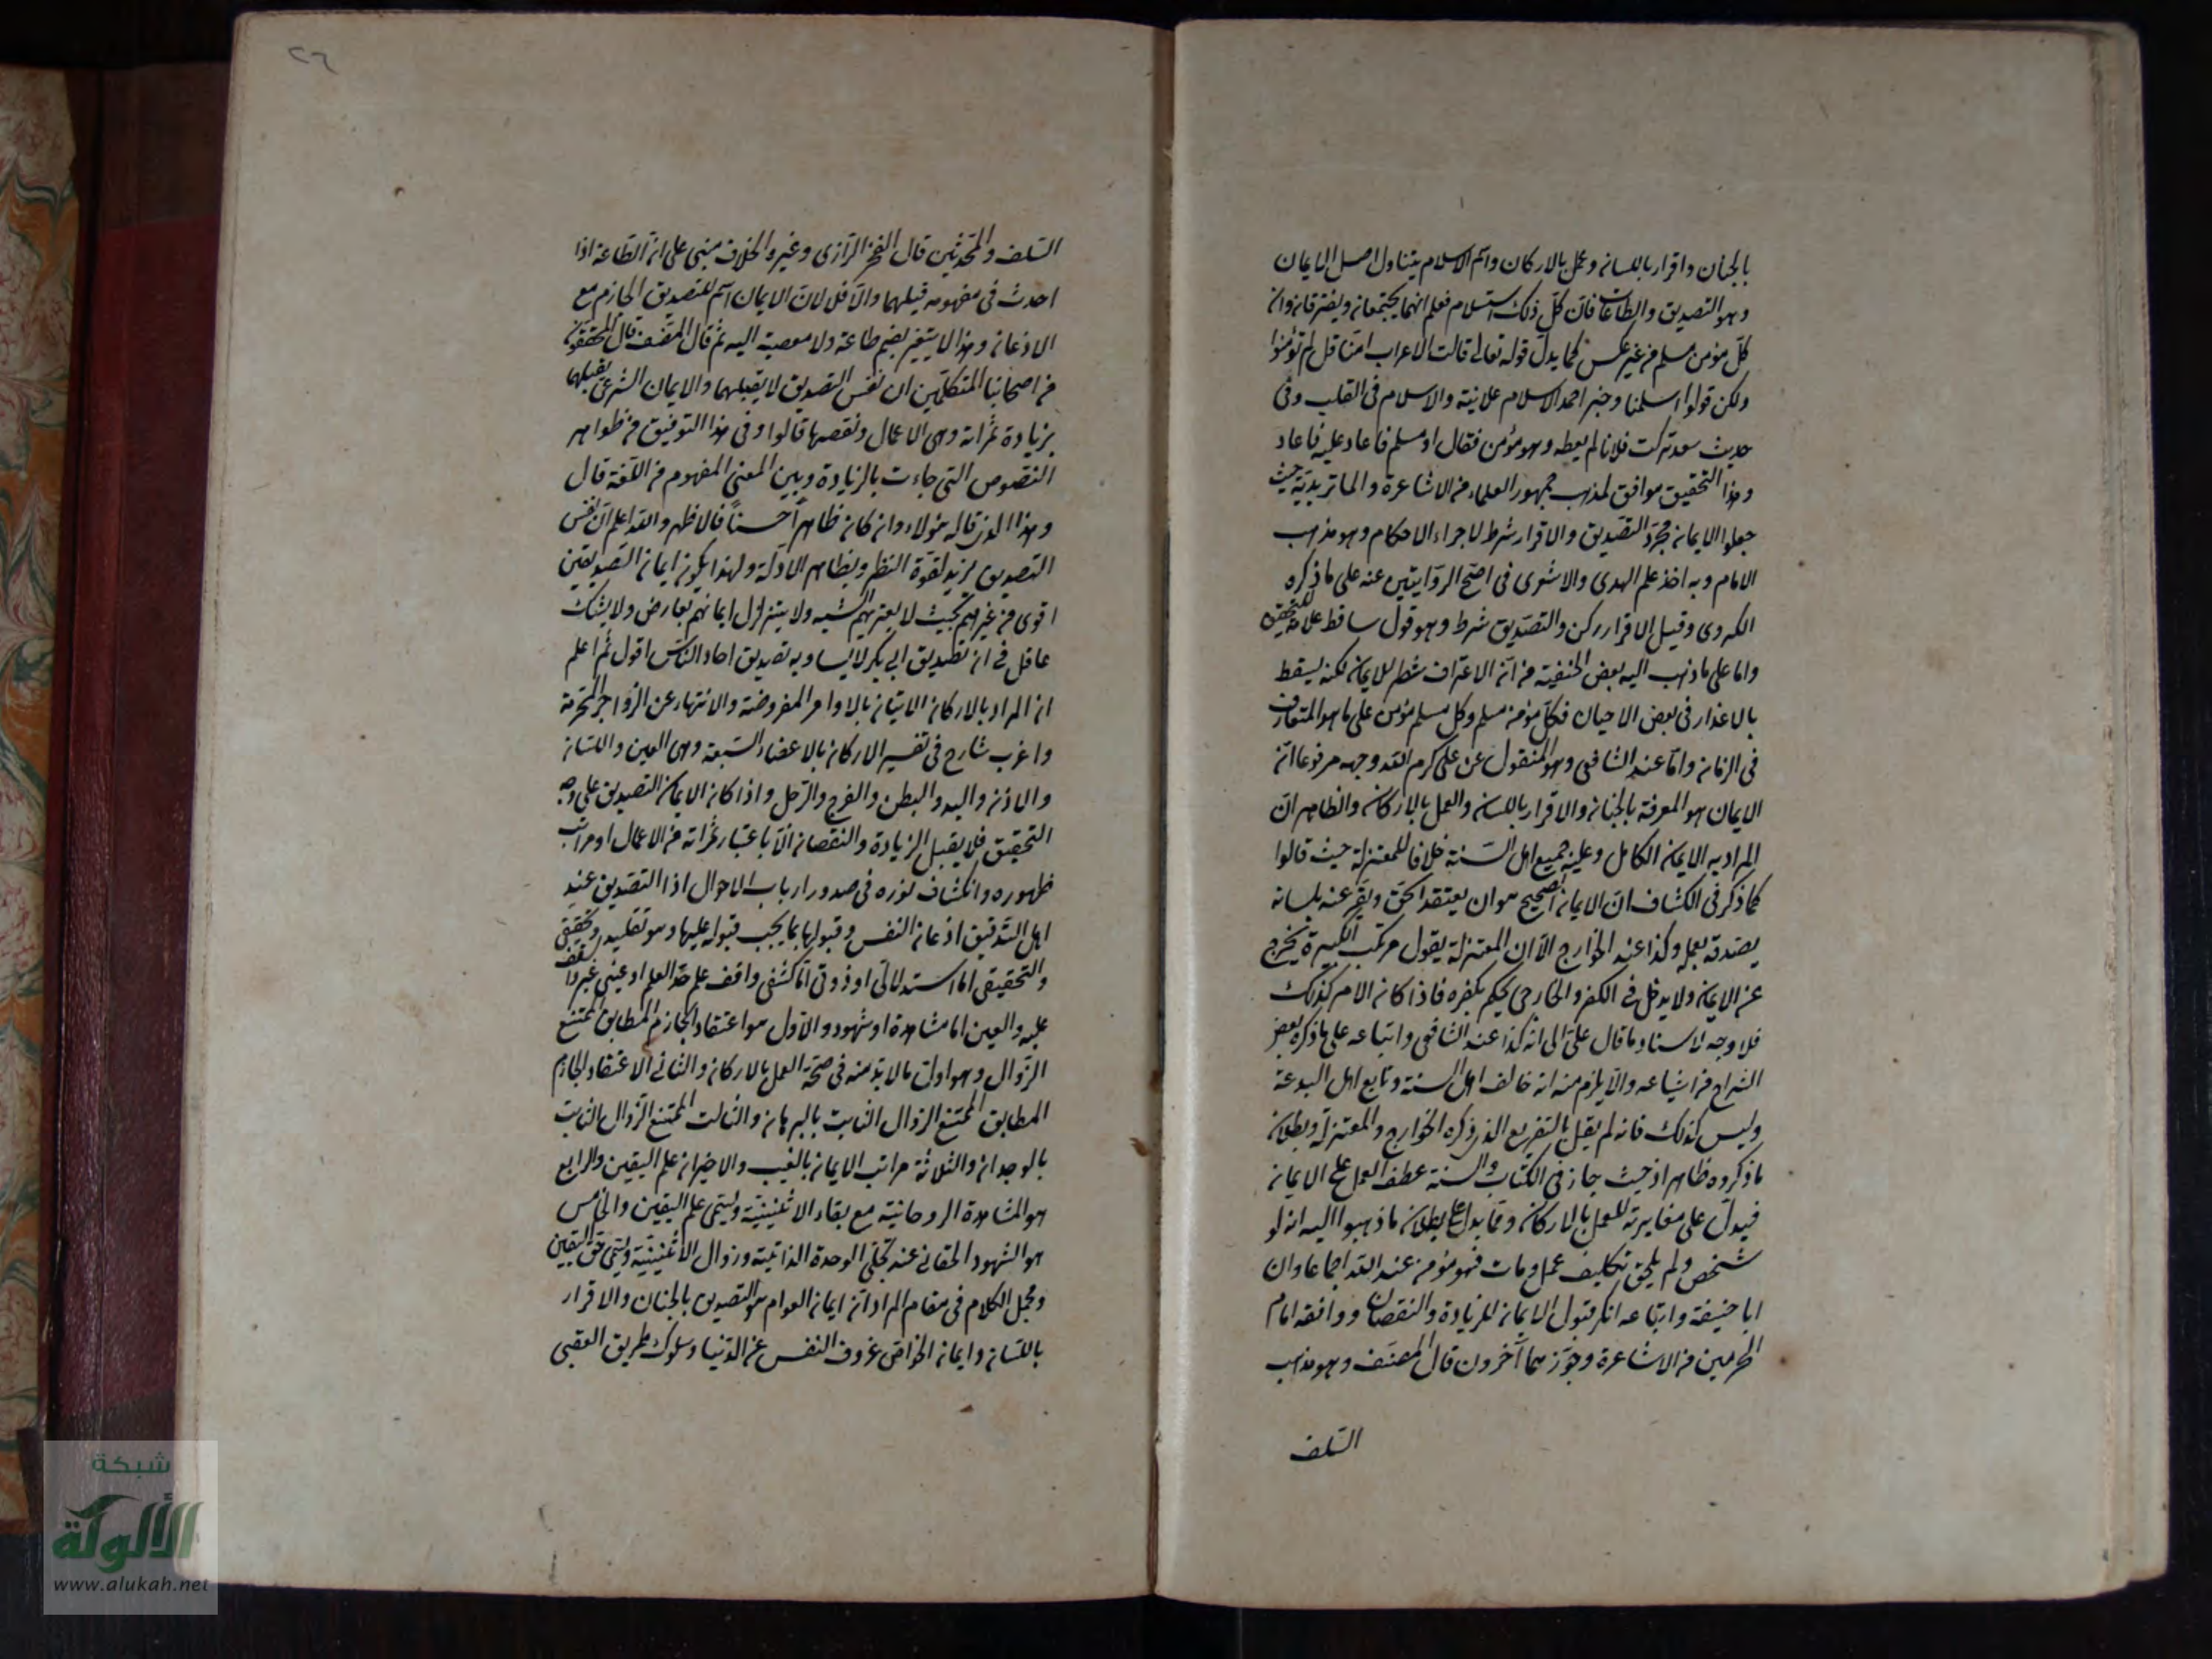 بالجنان واقرار باللسان وعمل بالاركان واسم الاسلام يتناول اصل الايمان
وهو التصديق والطاعات فان كل ذلك استسلام فعلم انهما يجتمعان ويفترقان وان
كل مؤمن مسلم من غير عكس كما يدل قوله تعالى قالت الاعراب امنا قل لم تؤمنوا
ولكن قولوا اسلمنا وخبر احمد الاسلام علانية والاسلام فى القلب وفى
حديث سعد تركت فلانا لم يعطه وهو مؤمن فقال او مسلم فاعاد عليه فاعاد
وهذا التحقيق موافق لمذهب جمهور العلماء من الاشاعرة والماتريدية حيث
جعلوا الايمان مجرد التصديق والاقرار شرط لاجراء الاحكام وهو مذهب
الامام وبه اخذ علم الهدى والاشعرى فى اصح الروايتين عنه على ما ذكره
الكردى وقيل الاقرار ركن والتصديق شرط وهو قول ساقط
واما على ما ذهب اليه بعض الحنفية من ان الاعتراف شطر للايمان لكنه يسقط
بالاعذار فى بعض الاحيان فكل مؤمن مسلم وكل مسلم مؤمن على ما هو المتعارف
فى الزمان واما عند الشافعى وهو المنقول عن على كرم الله وجهه مرفوعا ان
الايمان هو المعرفة بالجنان والاقرار باللسان والعمل بالاركان والظاهر ان
المراد به الايمان الكامل وعليه جميع اهل السنة خلافا للمعتزلة حيث قالوا
كما ذكر فى الكشاف ان الايمان الصحيح هو ان يعتقد الحق ويقر عنه بلسانه
يصدقه بعمله وكذا عند الخوارج الا ان المعتزلة يقول مرتكب الكبيرة يخرج
عن الايمان ولا يدخل فى الكفر والخارجى يحكم بكفره فاذا كان الامر كذلك
فلا وجه لاسناد ما قال على الى انه كذا عند الشافعى واتباعه على ما ذكره بعض
الشراح من اشياعه والا يلزم منه انه خالف اهل السنة وتابع اهل البدعة
وليس كذلك فانه لم يقل بالتفريع الذى ذكره الخوارج والمعتزلة وبطلان
ما ذكروه ظاهر اذ حيث جاز فى الكتاب والسنة عطف العمل على الايمان
فيدل على مغايرته للعمل بالاركان ومما يدل على بطلان ما ذهبوا اليه انه لو
شخص ولم يلحق تكليف عمل ومات فهو مؤمن عند الله اجماعا وان
ابا حنيفة واتباعه انكر قبول الايمان للزيادة والنقصان ووافقه امام
الحرمين من الاشاعرة وجوزهما آخرون قال المصنف وهو مذهب
السلف
٢٦
السلف والمحدثين قال الفخر الرازى وغيره والخلاف مبنى على ان الطاعة اذا
احدث فى مفهومه قبلهما والا فلا لان الايمان اسم للتصديق الجازم مع
الاذعان وهذا لا يتغير بضم طاعة ولا معصية اليه ثم قال المصنف قال المحققون
من اصحابنا المتكلمين ان نفس التصديق لا يقبلهما والايمان الشرعى يقبلهما
بزيادة ثمراته وهى الاعمال ونقصها قالوا وفى هذا التوفيق من ظواهر
النصوص التى جاءت بالزيادة وبين المعنى المفهوم من اللغة قال
وهذا الذى قاله هؤلاء وان كان ظاهرا حسنا فالاظهر والله اعلم ان نفس
التصديق يزيد لقوة النظر وبظاهر الادلة ولهذا يكون ايمان الصديقين
اقوى من غيرهم بحيث لا يعتريهم الشبه ولا يتزلزل ايمانهم بعارض ولا يشك
عاقل فى ان تصديق ابى بكر لا يساويه تصديق احاد الناس اقول ثم اعلم
ان المراد بالاركان الاتيان بالاوامر المفروضة والانتهاء عن الزواجر المحرمة
واغرب شارح فى تفسير الاركان بالاعضاء السبعة وهى العين واللسان
والاذن واليد والبطن والفرج والرجل واذا كان الايمان التصديق على وجه
التحقيق فلا يقبل الزيادة والنقصان الا باعتبار ثمراته من الاعمال او مراتب
ظهوره وانكشاف نوره فى صدور ارباب الاحوال اذا التصديق عند
اهل التدقيق اذعان النفس وقبولها بما يجب قبوله عليها وهو تقليد وتحقيق
والتحقيقى اما استدلالى او ذوقى اما كشفى واقف على حد العلم او عينى غير واقف
عليه والعين اما مشاهدة او شهود والاول هو اعتقاد الجازم المطابق الممتنع
الزوال وهو اول ما لا بد منه فى صحة العمل بالاركان والثانى الاعتقاد الجازم
المطابق الممتنع الزوال الثابت بالبرهان والثالث الممتنع الزوال الثابت
بالوجدان والثلاثة مراتب الايمان بالغيب والاخيران علم اليقين والرابع
هو المشاهدة الروحانية مع بقاء الاثنينية ويسمى علم اليقين والخامس
هو الشهود الحقانى عند تجلى الوحدة الذاتية وزوال الاثنينية ويسمى حق اليقين
ومجمل الكلام فى مقام المراد ان ايمان العوام هو التصديق بالجنان والاقرار
باللسان وايمان الخواص عزوف النفس عن الدنيا وسلوك طريق العقبى
شبكة
الألوكة
www.alukah.net